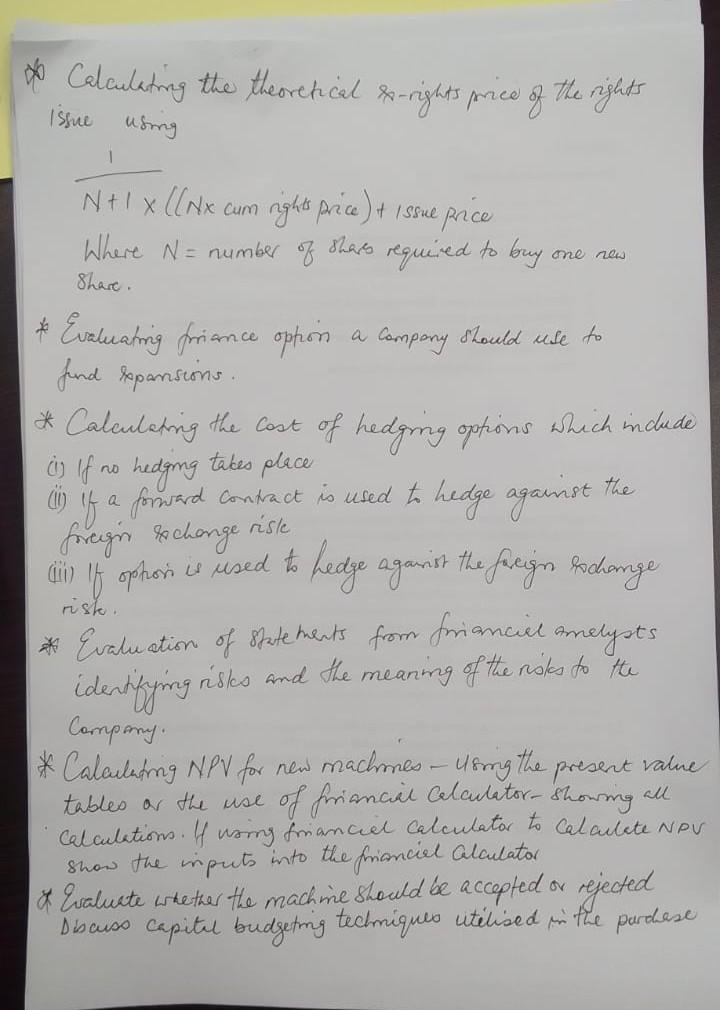 * Calculating the theoretical ex-rights price of the rights
issue using
1
N+1 x ((Nx cum rights price) + issue price
Where N = number of shares required to buy one new
share.
* Evaluating finance option a company should use to
fund expansions.
* Calculating the cost of hedging options which include
(i) If no hedging takes place
(ii) If a forward contract is used to hedge against the
foreign exchange risk
(iii) If option is used to hedge against the foreign exchange
risk.
* Evaluation of statements from financial analysts
identifying risks and the meaning of the risks to the
Company.
* Calculating NPV for new machines - using the present value
tables or the use of financial calculator - showing all
calculations. If using financial calculator to calculate NPV
show the inputs into the financial calculator
* Evaluate whether the machine should be accepted or rejected
Discuss capital budgeting techniques utilised in the purchase